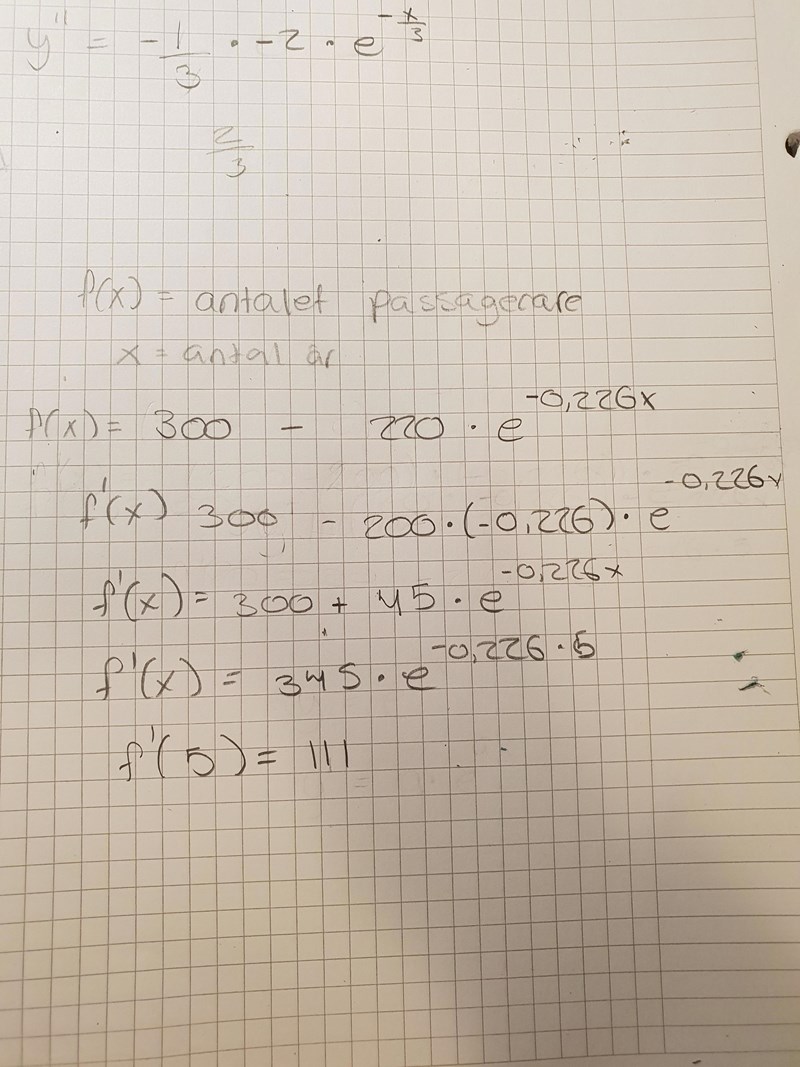 y'' = -1/3 · -2 · e^(-x/3)
2/3
f(x) = antalet passagerare
x = antal år
f(x) = 300 - 220 · e^(-0,226x)
f'(x) 300 - 200·(-0,226)· e^(-0,226x)
f'(x) = 300 + 45 · e^(-0,226x)
f'(x) = 345 · e^(-0,226·5)
f'(5) = 111